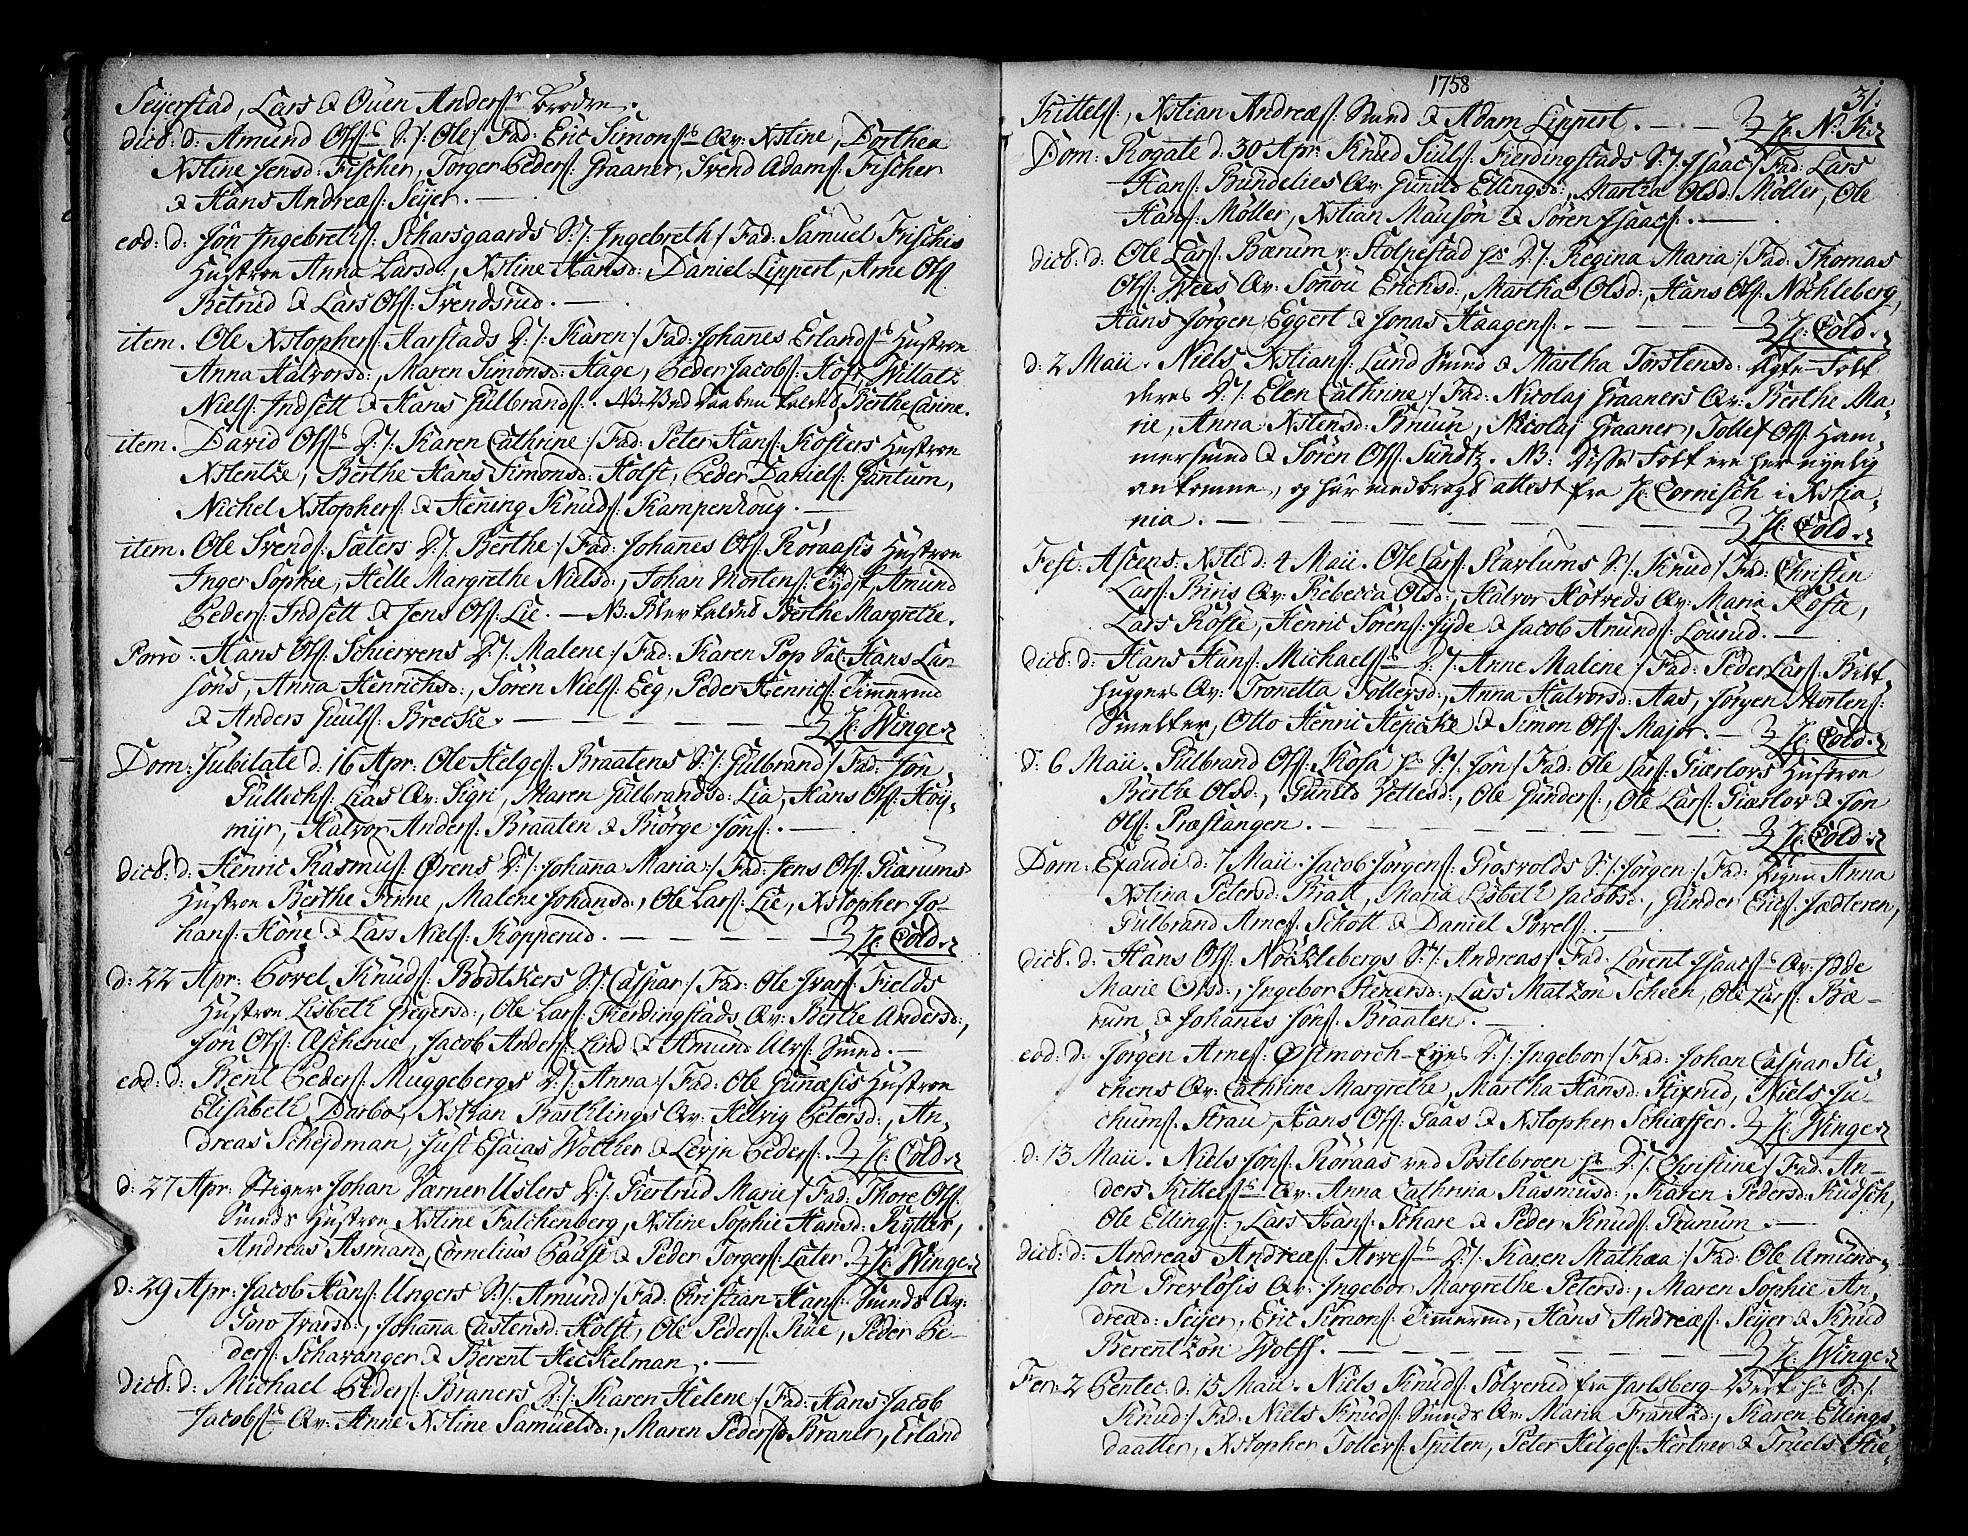 Seyerstad, Lars & Ouen Andersr brødre.
dicb: d: Amund Olss S:/: Ole/: Fad: Eric Simonss Qv: Xstine, Dorthea
Xstine Jensd: Fischer, Torger Peders: Graaner, Svend Adams: Fischer
& Hans Andreæs: Seyer. —
eod: d: Jøn Ingebretts: Scharsgaards S:/: Ingebreth/: Fad: Samuel Frischis
Hustroe Anna Larsd:, Xstine Hansd: Daniel Lippert, Arne Ols:
Betrud & Lars Ols: Svendsrud. —
item. Ole Xstophers: Aarstads D:/: Karen:/ Fad: Johanes Erlands Hustroe
Anna Halvorsd:, Maren Simonsd: Hage, Peder Jacobs: Hoff, Wiltatz
Niels: Indsett & Hans Gulbrands: . NB. Ved Daaben kaldes Berthe Carine.
item. David Olss D:/: Karen Cathrine:/ Fad: Peter Hans: Kofters Hustroe
Xstentze, Berthe Hans Simonsd: Holst, Peder Daniels: Gantum,
Nichel Xstophers: & Hening Knuds: Kampenhoug. —
item. Ole Svends: Sæters D:/: Berthe:/ Fad: Johanes Ols: Røraasis Hustroe
Inger Sophie, Helle Margrethe Nielsd:, Johan Mortens: Eydst, Amund
Peders: Indsett & Jens Ols: Lie. — NB: Blev kaldes Berthe Margrethe.
Porro. Hans Ols: Schiervens D:/: Malene:/ Fad: Karen Pop Sal: Hans Lar-
søns, Anna Henrichsd:, Søren Niels: Eeg, Peder Henrics: Timerud
& Anders Juuls: Brecke. — — — — Hr: Winger
Dom: Jubilate d: 16 Apr: Ole Helges: Braatens S:/: Gulbrand/: Fad: Jøn
Gullechs: Lias Qv: Sigri, Maren Gulbrandsd: Lia, Hans Ols: Høy-
myr, Halvor Anders: Braaten & Biørge Jøns: . —
dicb: d: Henric Rasmus: Ørens D:/: Johanna Maria:/ Fad: Jens Ols: Ranums
Hustroe Berthe Finne, Malene Johansd:, Ole Lars: Lie, Xstopher Jo-
hans: Høne & Lars Niels: Kopperud. — — — — Hr: Cold.
d: 22 Apr: Povel Knuds: Bødtkers S:/ Caspar/: Fad: Ole Ivars: Fields
Hustroe Lisbeth Gregersd:, Ole Lars: Fierdingstads Qv: Berthe Andersd:,
Jøn Ols: Ascherue, Jacob Anders: Lind & Amund Ulrs: Smed. —
eod: d: Bent Peders: Muggebergs D:/: Anna:/ Fad: Ole Gunæsis Hustroe
Elisabeth Darbo, Xstian Barthlings Qv: Helvig Petersd:, An-
dreas Schejdman, Just Esaias Woltler & Levin Peders: . Hr: Cold.
d: 27 Apr: Stiger Johan Varner Uslers D:/: Gertrud Marie/: Fad: Thore Ols:
Smeds Hustroe Xstine Falchenberg, Xstine Sophie Hansd: Rytter,
Andreas Asmand, Cornelius Pause & Peder Torgers: Later. Hr: Winger
d: 29 Apr: Jacob Hans: Ungers S:/: Amund/: Fad: Christian Hans: Smeds Qv:
Goro Ivarsd:, Johanna Castensd: Holst, Ole Peders: Rue, Peder Pe-
ders: Schavanger & Berent Heckelman. —
dicb: d: Michael Peders: Braners D:/: Karen Helene:/ Fad: Hans Jacob
Jacobss Qv: Anne Xstine Samuelsd:, Maren Pedersd: Braner, Erland
1758
31.
Kittels:, Xstian Andreæs: Brand & Adam Lippert. — — Hr: N: K:
Dom: Rogate d: 30 Apr: Knud Juls: Fierdingstads S:/: Isaac/: Fad: Lars
Hans: Bundelies Qv: Gunild Ellingsd:, Martha Olsd: Møller, Ole
Hans: Møller, Xstian Mausøn & Søren Isaacs: . —
dicb: d: Ole Lars: Bærum v: Stolpestad ps D:/: Regina Maria:/ Fad: Thomas
Ols: Wees Qv: Sønou Erichsd:, Martha Olsd:, Hans Ols: Nøchleberg,
Hans Jørgen Eggert & Jonas Haagens: . — — — — Hr: Cold.
d: 2 Maii. Niels Xstians: Lund Smed & Martha Torstensd: Ægte-Folk
deres D:/: Elen Cathrine:/ Fad: Nicolaj Graaners Qv: Berthe Ma-
rie, Anna Xstensd: Bruun, Nicolaj Graaner, Tollef Ols: Ham-
mersmed & Søren Ols: Sundtz. NB: Disse Folk ere her nyelig
ankomne, og har medbragt attest fra Hr: Cornisch i Xstia-
nia. — — — — — — — Hr: Cold.
Fest: Ascens: Xsti d: 4 Maii. Ole Lars: Starlums S:/: Knud/: Fad: Christen
Lars: Biris Qv: Rebecca Olsd:, Halvor Hotveds Qv: Maria Kofte,
Lars Kofte, Henric Sørens: Syde & Jacob Amunds: Lourud. —
dicb: d: Hans Hans: Michaelss D:/: Anne Malene:/ Fad: Peder Lars: Bill-
huggers Qv: Tronetta Tollersd:, Anna Halvorsd: Aas, Jørgen Mortens:
Smelter, Otto Henric Hepcke & Simon Ols: Major. — Hr: Cold.
d: 6 Maii. Gulbrand Ols: Kosa ps S:/: Jøn/: Fad: Ole Lars: Giærlovs Hustroe
Berthe Olsd:, Gunild Vetlesd:, Ole Gunders:, Ole Lars: Giærlov & Jøn
Ols: Præstangen. — — — — — Hr: Cold.
Dom: Exaudi d: 7 Maii. Jacob Jørgens: Grosvolds S:/: Jørgen:/ Fad: Pigen Anna
Xstina Petersd: Bratt, Maria Lisbeth Jacobsd:, Gunder Erics: Jædteren,
Gulbrand Arnes: Schott & Daniel Povels: . —
dicb. d: Hans Ols: Nøcklebergs S:/: Andreas/: Fad: Lorent Isaacs Qv: Idde
Marie Olsd:, Ingebor Stenersd:, Lars Matzøn Scheen, Ole Lars: Bæ-
rum, & Johanes Jøns: Braaten. —
eod: d: Jørgen Arnes: Ostmorch-Eyes D:/: Ingebor:/ Fad: Johan Caspar Ste-
chens Qv: Cathrine Margrethe, Martha Hansd: Stixrud, Niels Ju-
chums: Strau, Hans Ols: Gaas & Xstopher Schiæffer. Hr: Winger
d: 13 Maii. Niels Jøns: Røraas ved Poslebroen ps D:/: Christine/: Fad: An-
ders Kittelss Qv: Anna Cathrina Rasmusd:, Karen Pedersd: Kudsch,
Ole Ellings:, Lars Hans: Schare & Peder Knuds: Ranum —
dicb: d: Andreas Andreæs: Arvess D:/: Karen Mathea:/ Fad: Ole Amund-
søn Grevløsis Qv: Ingebor Margrethe Petersd:, Maren Sophie An-
dread: Seyer, Eric Simons: Timerud, Hans Andreæs: Seyer & Knud
Berentzøn Wolff. — — — — — Hr: Winger
Fer: 2 Pentec: d: 15 Maii. Niels Knuds: Solverud fra Jarlsberg-Verk ps S:/:
Knud:/ Fad: Niels Knuds: Smeds Qv: Maria Frantzd:, Karen Ellings
daatter, Xstopher Tollers: Spiten, Peter Helges: Hertner & Truels Stie-